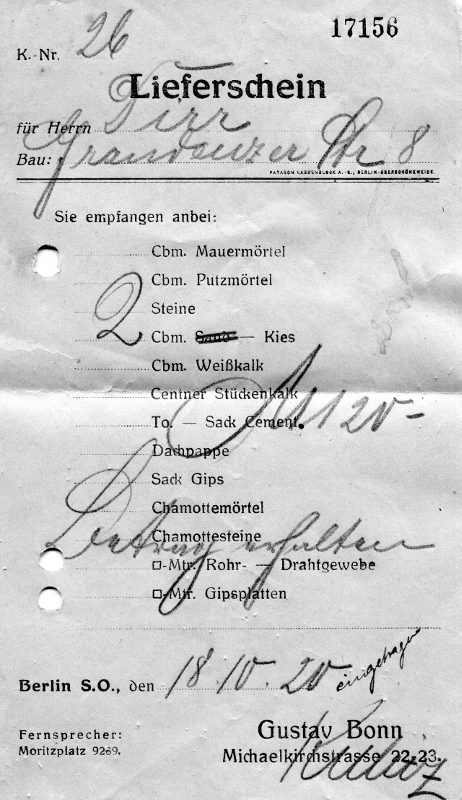 17156
K.-Nr. 26
Lieferschein
für Herrn Tirr
Bau: Graudenzer Str 8
PARAGON KASSENBLOCK A.-G., BERLIN-OBERSCHÖNEWEIDE
Sie empfangen anbei:
Cbm. Mauermörtel
Cbm. Putzmörtel
Steine
2 Cbm. Sand — Kies
Cbm. Weißkalk
Centner Stückenkalk
To. — Sack Cement. 1120-
Dachpappe
Sack Gips
Chamottemörtel
Chamottesteine
Betrag erhalten
□-Mtr. Rohr- — Drahtgewebe
□-Mtr. Gipsplatten
Berlin S.O., den 18.10.20 eingetragen
Fernsprecher:
Moritzplatz 9269.
Gustav Bonn
Michaelkirchstrasse 22-23.